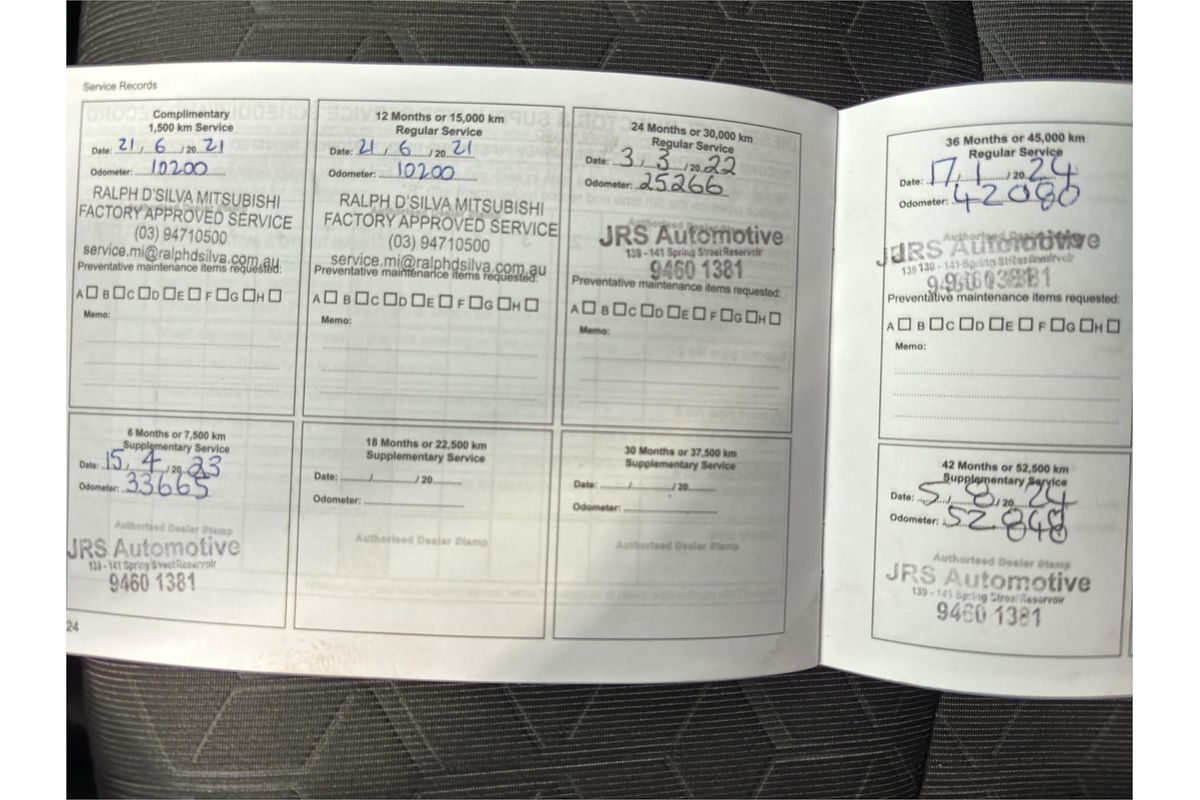 Service Records
Complimentary
1,500 km Service
Date: 21 / 6 / 20 21
Odometer: 10200
RALPH D'SILVA MITSUBISHI
FACTORY APPROVED SERVICE
(03) 94710500
service.mi@ralphdsilva.com.au
Preventative maintenance items requested:
A B C D E F G H
Memo:
12 Months or 15,000 km
Regular Service
Date: 21 / 6 / 20 21
Odometer: 10200
RALPH D'SILVA MITSUBISHI
FACTORY APPROVED SERVICE
(03) 94710500
service.mi@ralphdsilva.com.au
Preventative maintenance items requested:
A B C D E F G H
Memo:
24 Months or 30,000 km
Regular Service
Date: 3 / 3 / 20 22
Odometer: 25266
Authorised Dealer Stamp
JRS Automotive
139 - 141 Spring Street Reservoir
9460 1381
Preventative maintenance items requested:
A B C D E F G H
Memo:
6 Months or 7,500 km
Supplementary Service
Date: 15 / 4 / 20 23
Odometer: 33665
Authorised Dealer Stamp
JRS Automotive
139 - 141 Spring Street Reservoir
9460 1381
18 Months or 22,500 km
Supplementary Service
Date: / / 20
Odometer:
Authorised Dealer Stamp
30 Months or 37,500 km
Supplementary Service
Date: / / 20
Odometer:
Authorised Dealer Stamp
24
36 Months or 45,000 km
Regular Service
Date: 17 / 1 / 20 24
Odometer: 42080
JRS Automotive
Preventative maintenance items requested:
A B C D E F G H
Memo:
42 Months or 52,500 km
Supplementary Service
Date: 5 / 8 / 20 24
Odometer: 52848
Authorised Dealer Stamp
JRS Automotive
139 - 141 Spring Street Reservoir
9460 1381